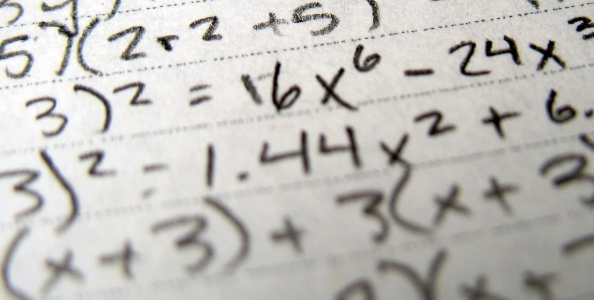 5)(2·2+5)
3)² = 16x⁶ - 24x³
3)² = 1.44x² + 6.
(x+3) + 3(x+3)
)(x+